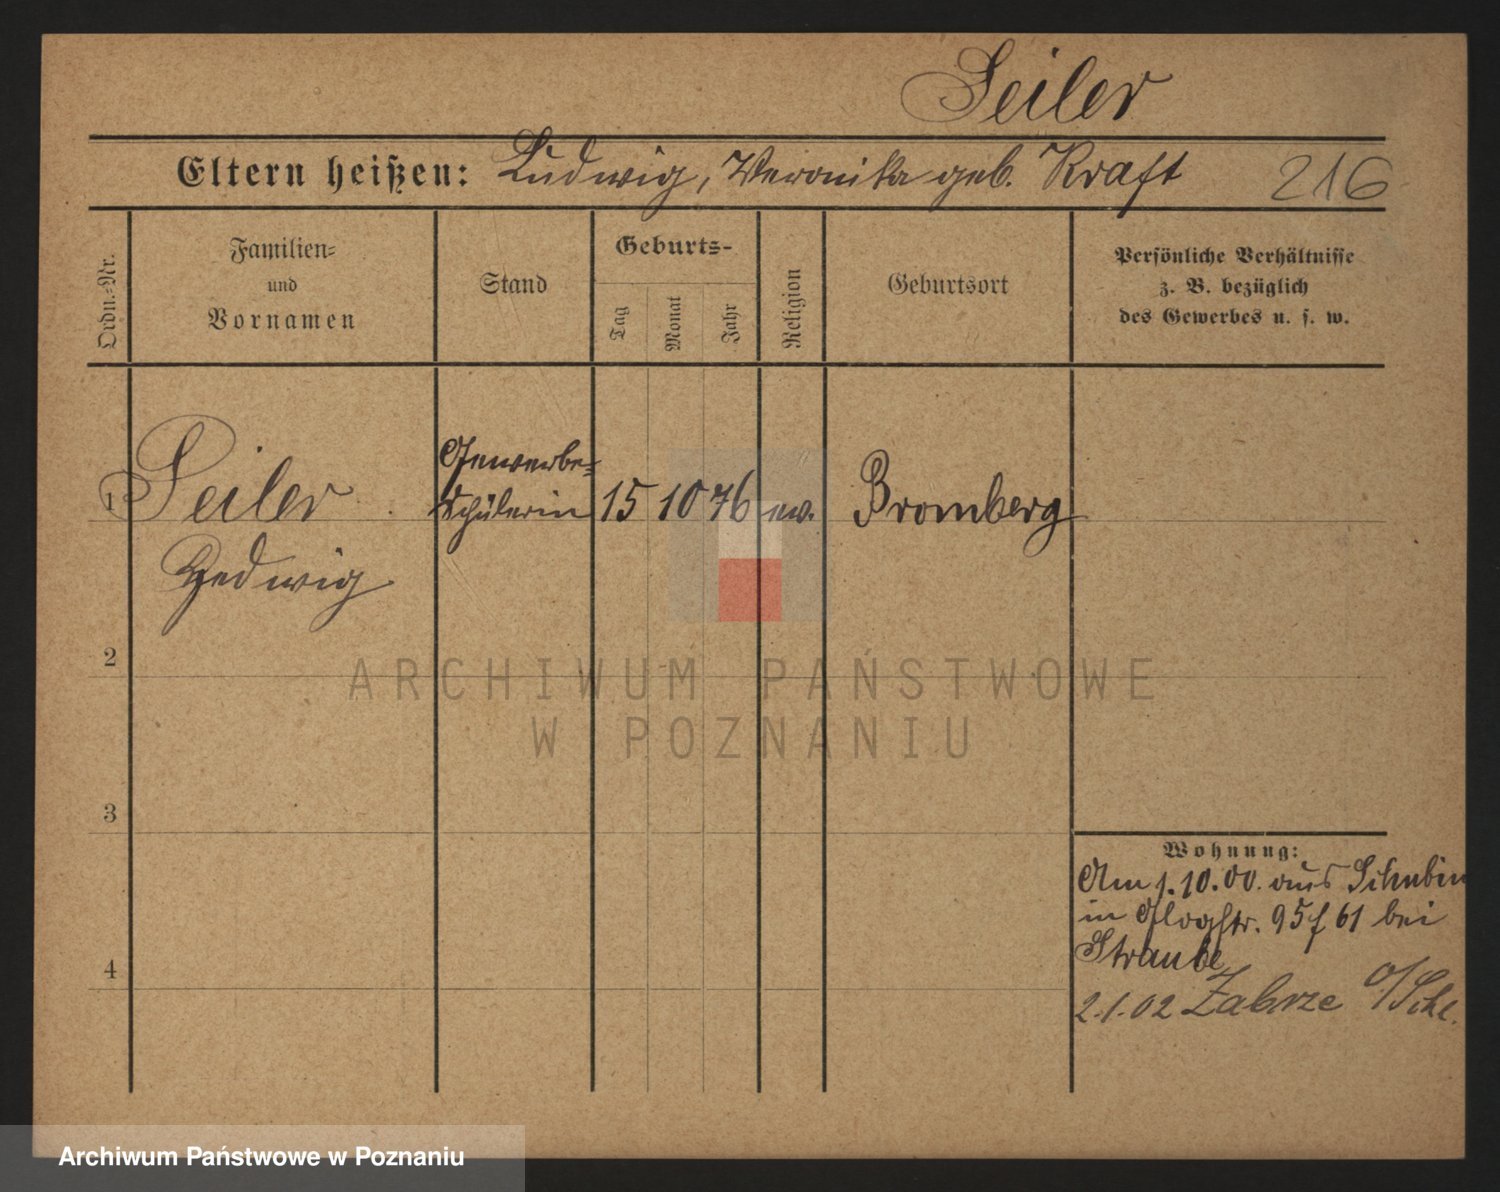 Seiler
Eltern heißen: Ludwig, Veronika geb. Kraft 216
Ordn.-Nr.
Familien-
und
Vornamen
Stand
Geburts-
Tag
Monat
Jahr
Religion
Geburtsort
Persönliche Verhältnisse
z. B. bezüglich
des Gewerbes u. s. w.
1 Seiler Gewerbe-
Schülerin 15 10 76 ev. Bromberg
Hedwig
2
3
4
Wohnung:
Am 1.10.00. aus Schubin
in 95 61 bei
Straube
2.1.02 Zabrze O/Schl.
ARCHIWUM PAŃSTWOWE
W POZNANIU
Archiwum Państwowe w Poznaniu